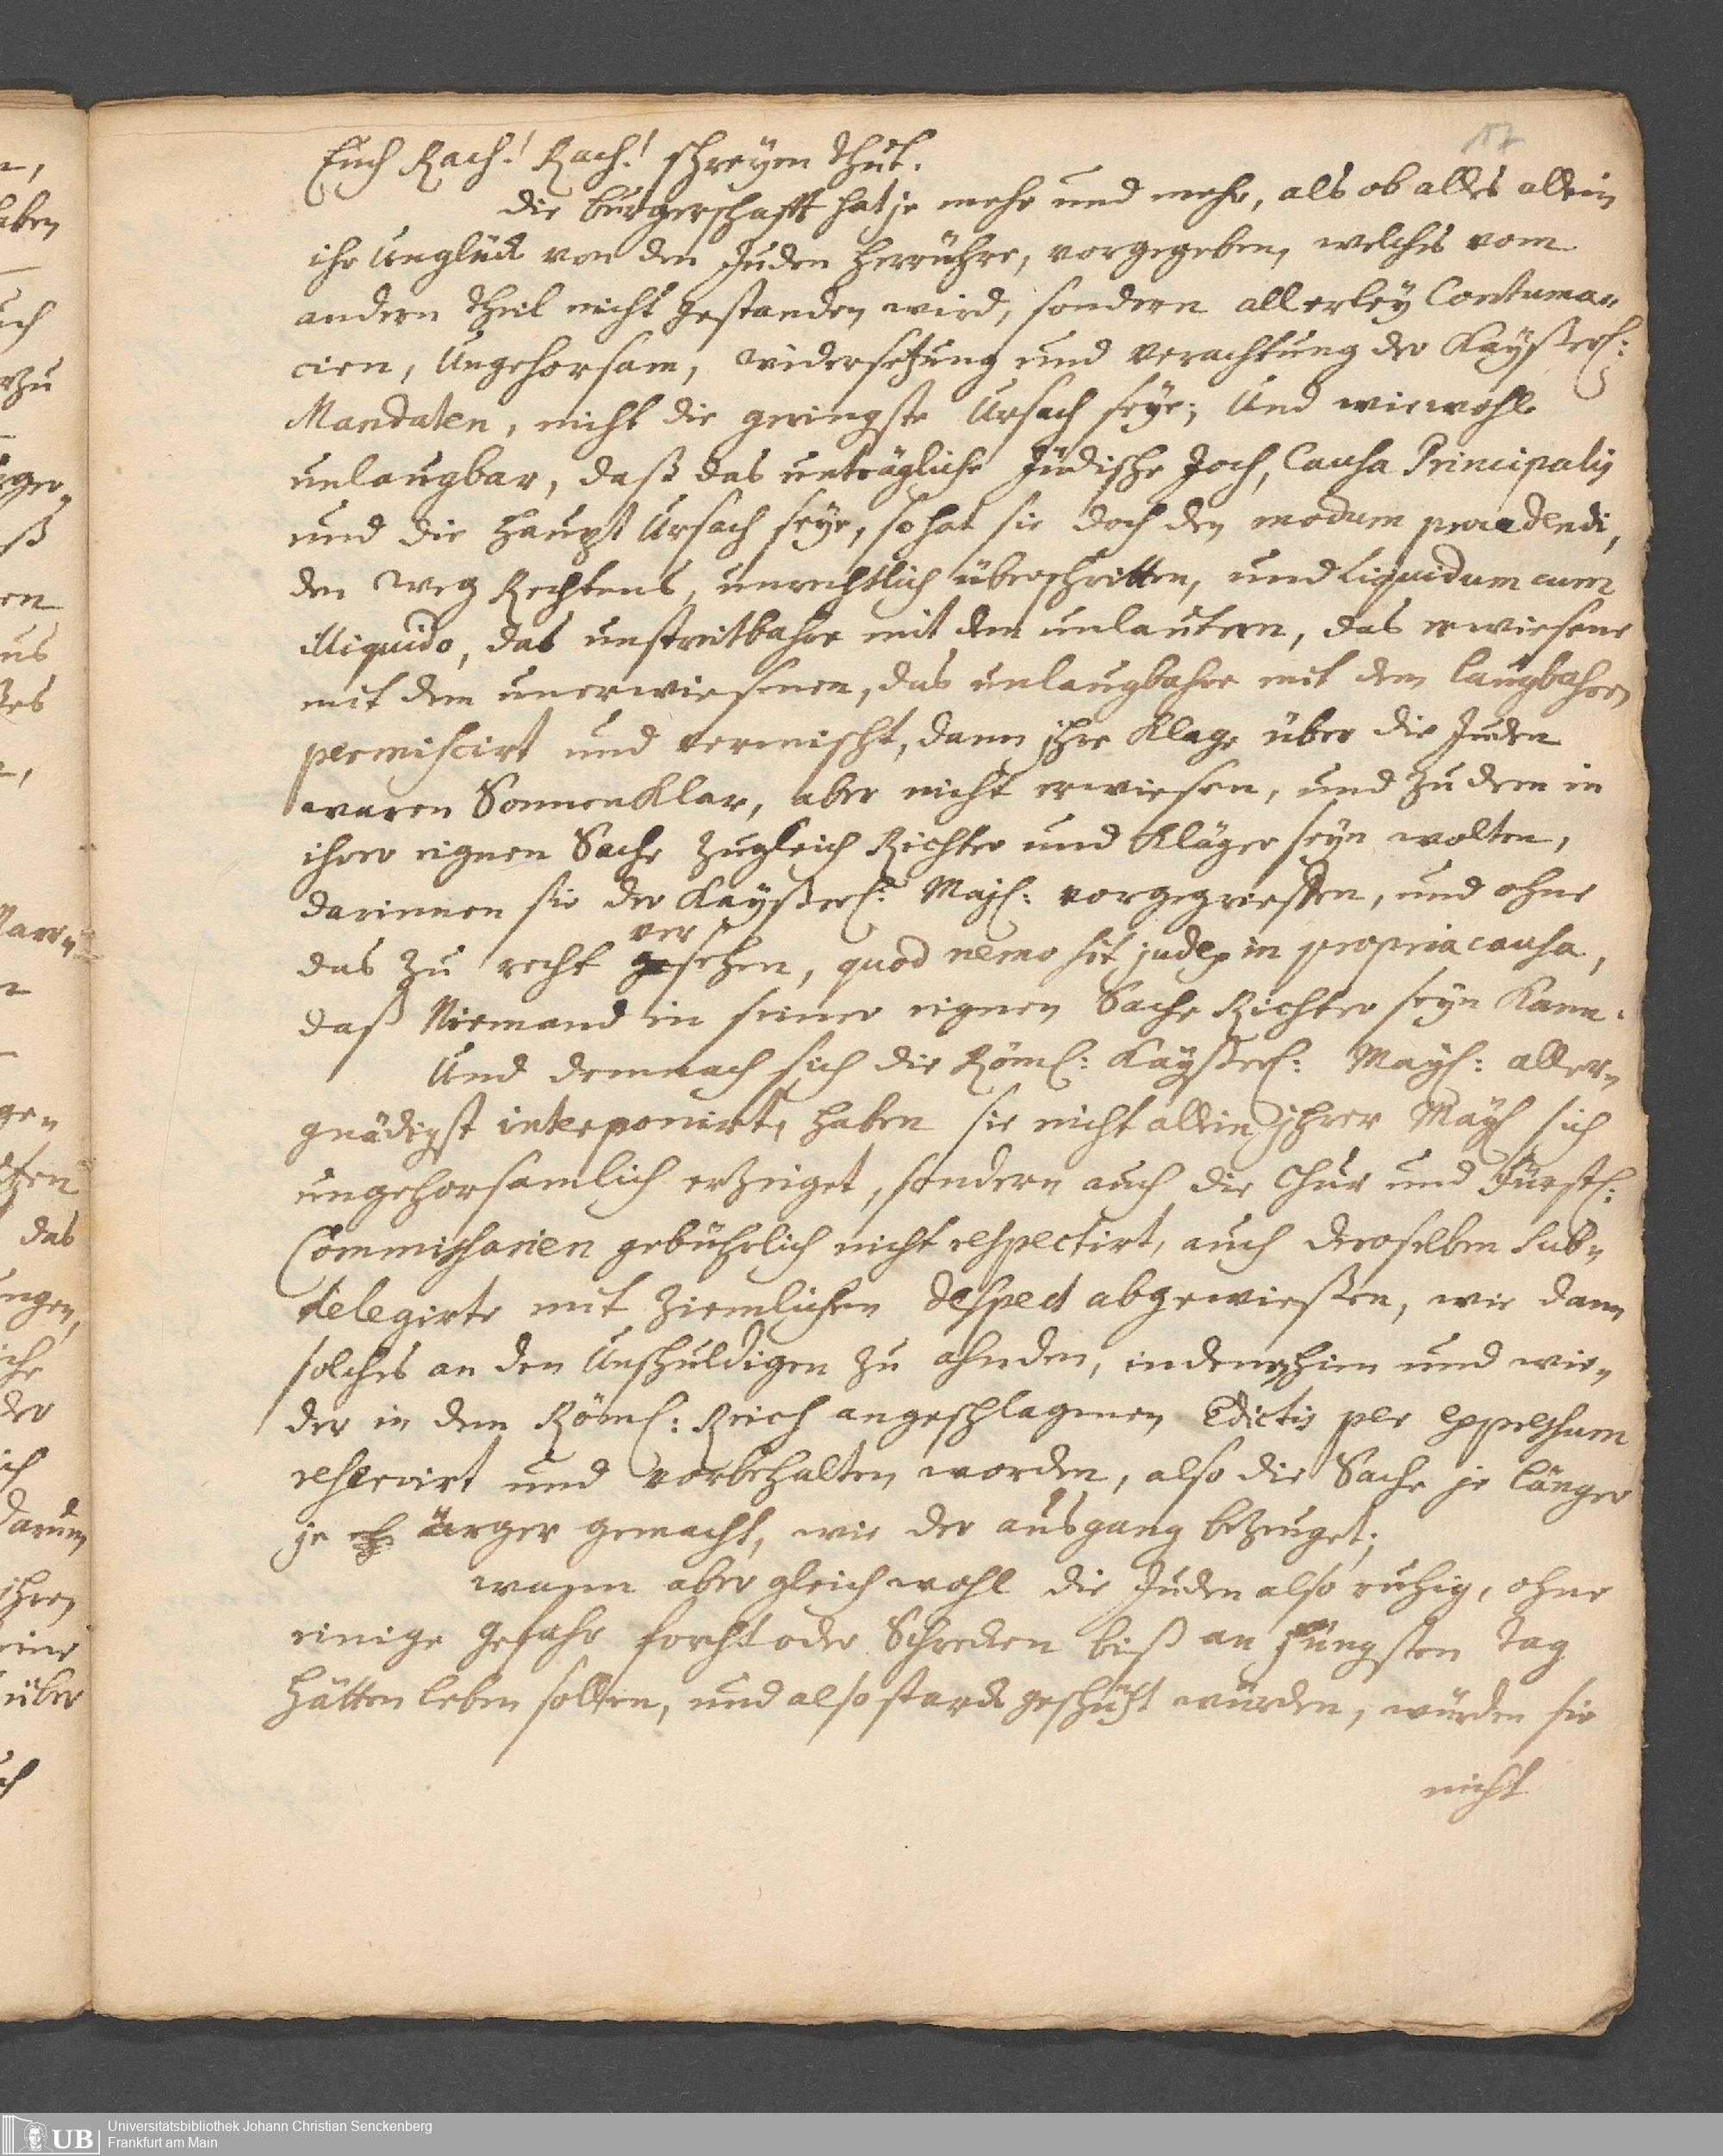 17
Euch Rach! Rach! schreyen thut.
die burgerschafft hat je mehr und mehr, als ob alles allein
ihr Unglück von den Juden herrühre, vorgegeben, welches vom
andern theil nicht gestanden wird, sondern allerley Contuma„
cien, Ungehorsam, widersetzung und verachtung der Kayßerl:
Mandaten, nicht die geringste Ursach seye; Und wiewohl
unlaugbar, daß das unträgliche Jüdische Joch, Causa Principalis
und die haupt Ursach seye, so hat sie doch den modum procedendi,
den weg Rechtens, unrechtlich überschritten, und Liquidum cum
illiquido, das unstreitbahre mit dem unlautern, das erwiesene
mit dem unerwiesenen, das unlaugbahre mit dem laugbahren
permiscirt und vermischt, dann ihre Klage über die Juden
waren Sonnenklar, aber nicht erwiesen, und zu dem in
ihrer eignen Sache zugleich Richter und Kläger seyn wolten,
darinnen sie der Kayßerl: Majl: vorgegrieffen, und ohne
ver
das zu recht gesehen, quod nemo sit judex in propria causa,
daß Niemand in seiner eignen Sache Richter seyn kann.
Und demnach sich die Röml: Kayßerl: Mayl: aller„
gnädigst interponirt, haben sie nicht allein ihrer Mayl sich
ungehorsamlich erzeiget, sondern auch die Chur und Fürstl:
Commissarien gebührlich nicht respectirt, auch deroselben sub„
delegirte mit ziemlichen despect abgewießen, wie dann
solches an den Unschuldigen zu ahnden, in denen hin und wie„
der in dem Röml: Reich angeschlagenen Edictis per expressum
reservirt und vorbehalten worden, also die Sache je länger
je ärger gemacht, wie der ausgang bezeuget;
wann aber gleichwohl die Juden also ruhig, ohne
einige gefahr forcht oder Schrecken biß an jüngsten tag
hätten leben sollen, und also starck geschützt würden, würden sie
nicht
UB
Universitätsbibliothek Johann Christian Senckenberg
Frankfurt am Main